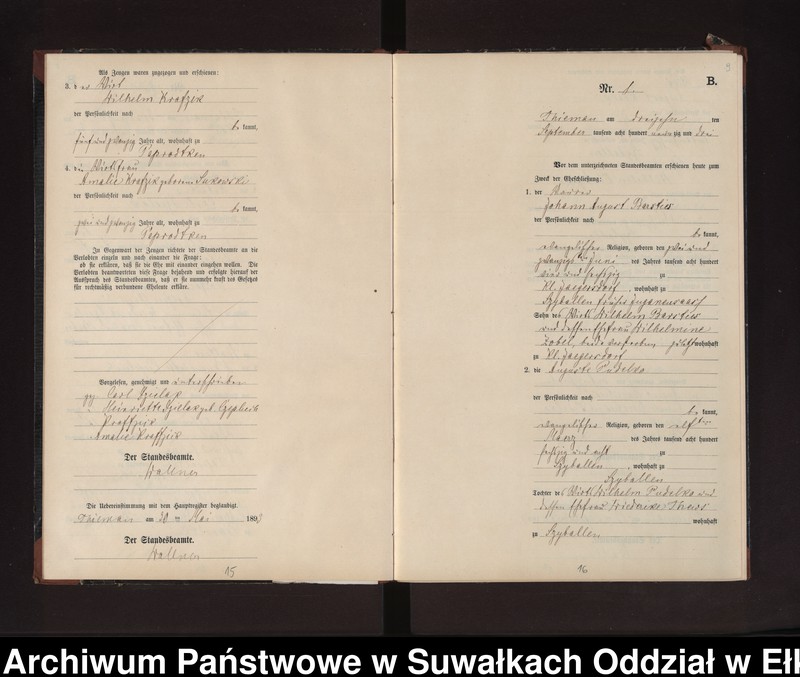 Als Zeugen waren zugezogen und erschienen:
3. der Wirt
Wilhelm Krafzik
der Persönlichkeit nach
be kannt,
fünfundzwanzig Jahre alt, wohnhaft zu
Paprodtken
4. die Wirthfrau
Amalie Krafzik geborene
der Persönlichkeit nach
be kannt,
zweiundzwanzig Jahre alt, wohnhaft zu
Paprodtken
In Gegenwart der Zeugen richtete der Standesbeamte an die
Verlobten einzeln und nach einander die Frage:
ob sie erklären, daß sie die Ehe mit einander eingehen wollen. Die
Verlobten beantworteten diese Frage bejahend und erfolgte hierauf der
Ausspruch des Standesbeamten, daß er sie nunmehr kraft des Gesetzes
für rechtmäßig verbundene Eheleute erkläre.
Vorgelesen, genehmigt und unterschrieben
gez. Carl
Henriette
Krafzik
Amalie Krafzik
Der Standesbeamte.
Wallner
Die Uebereinstimmung mit dem Hauptregister beglaubigt.
Thiemau am 10 ten Mai 1893
Der Standesbeamte.
Wallner
15
9
B.
Nr. 6.
Thiemau am dreizehn ten
September tausend acht hundert neunzig und drei
Vor dem unterzeichneten Standesbeamten erschienen heute zum
Zweck der Eheschließung:
1. der
Johann August
der Persönlichkeit nach
be kannt,
evangelischer Religion, geboren den zwei und
zwanzigsten Juni des Jahres tausend acht hundert
vier und sechzig zu
Kl. Jaegersdorf, wohnhaft zu
Szyballen früher
Sohn des Wirth Wilhelm
und dessen Ehefrau Wilhelmine
Zobel, beide verstorben, zuletzt wohnhaft
zu Kl. Jaegersdorf
2. die Auguste Pudelko
der Persönlichkeit nach
be kannt,
evangelischer Religion, geboren den elften
Maerz des Jahres tausend acht hundert
sechzig und acht zu
Szyballen, wohnhaft zu
Szyballen
Tochter des Wirth Wilhelm Pudelko und
dessen Ehefrau
wohnhaft
zu Szyballen
16
Archiwum Państwowe w Suwałkach Oddział w Ełk